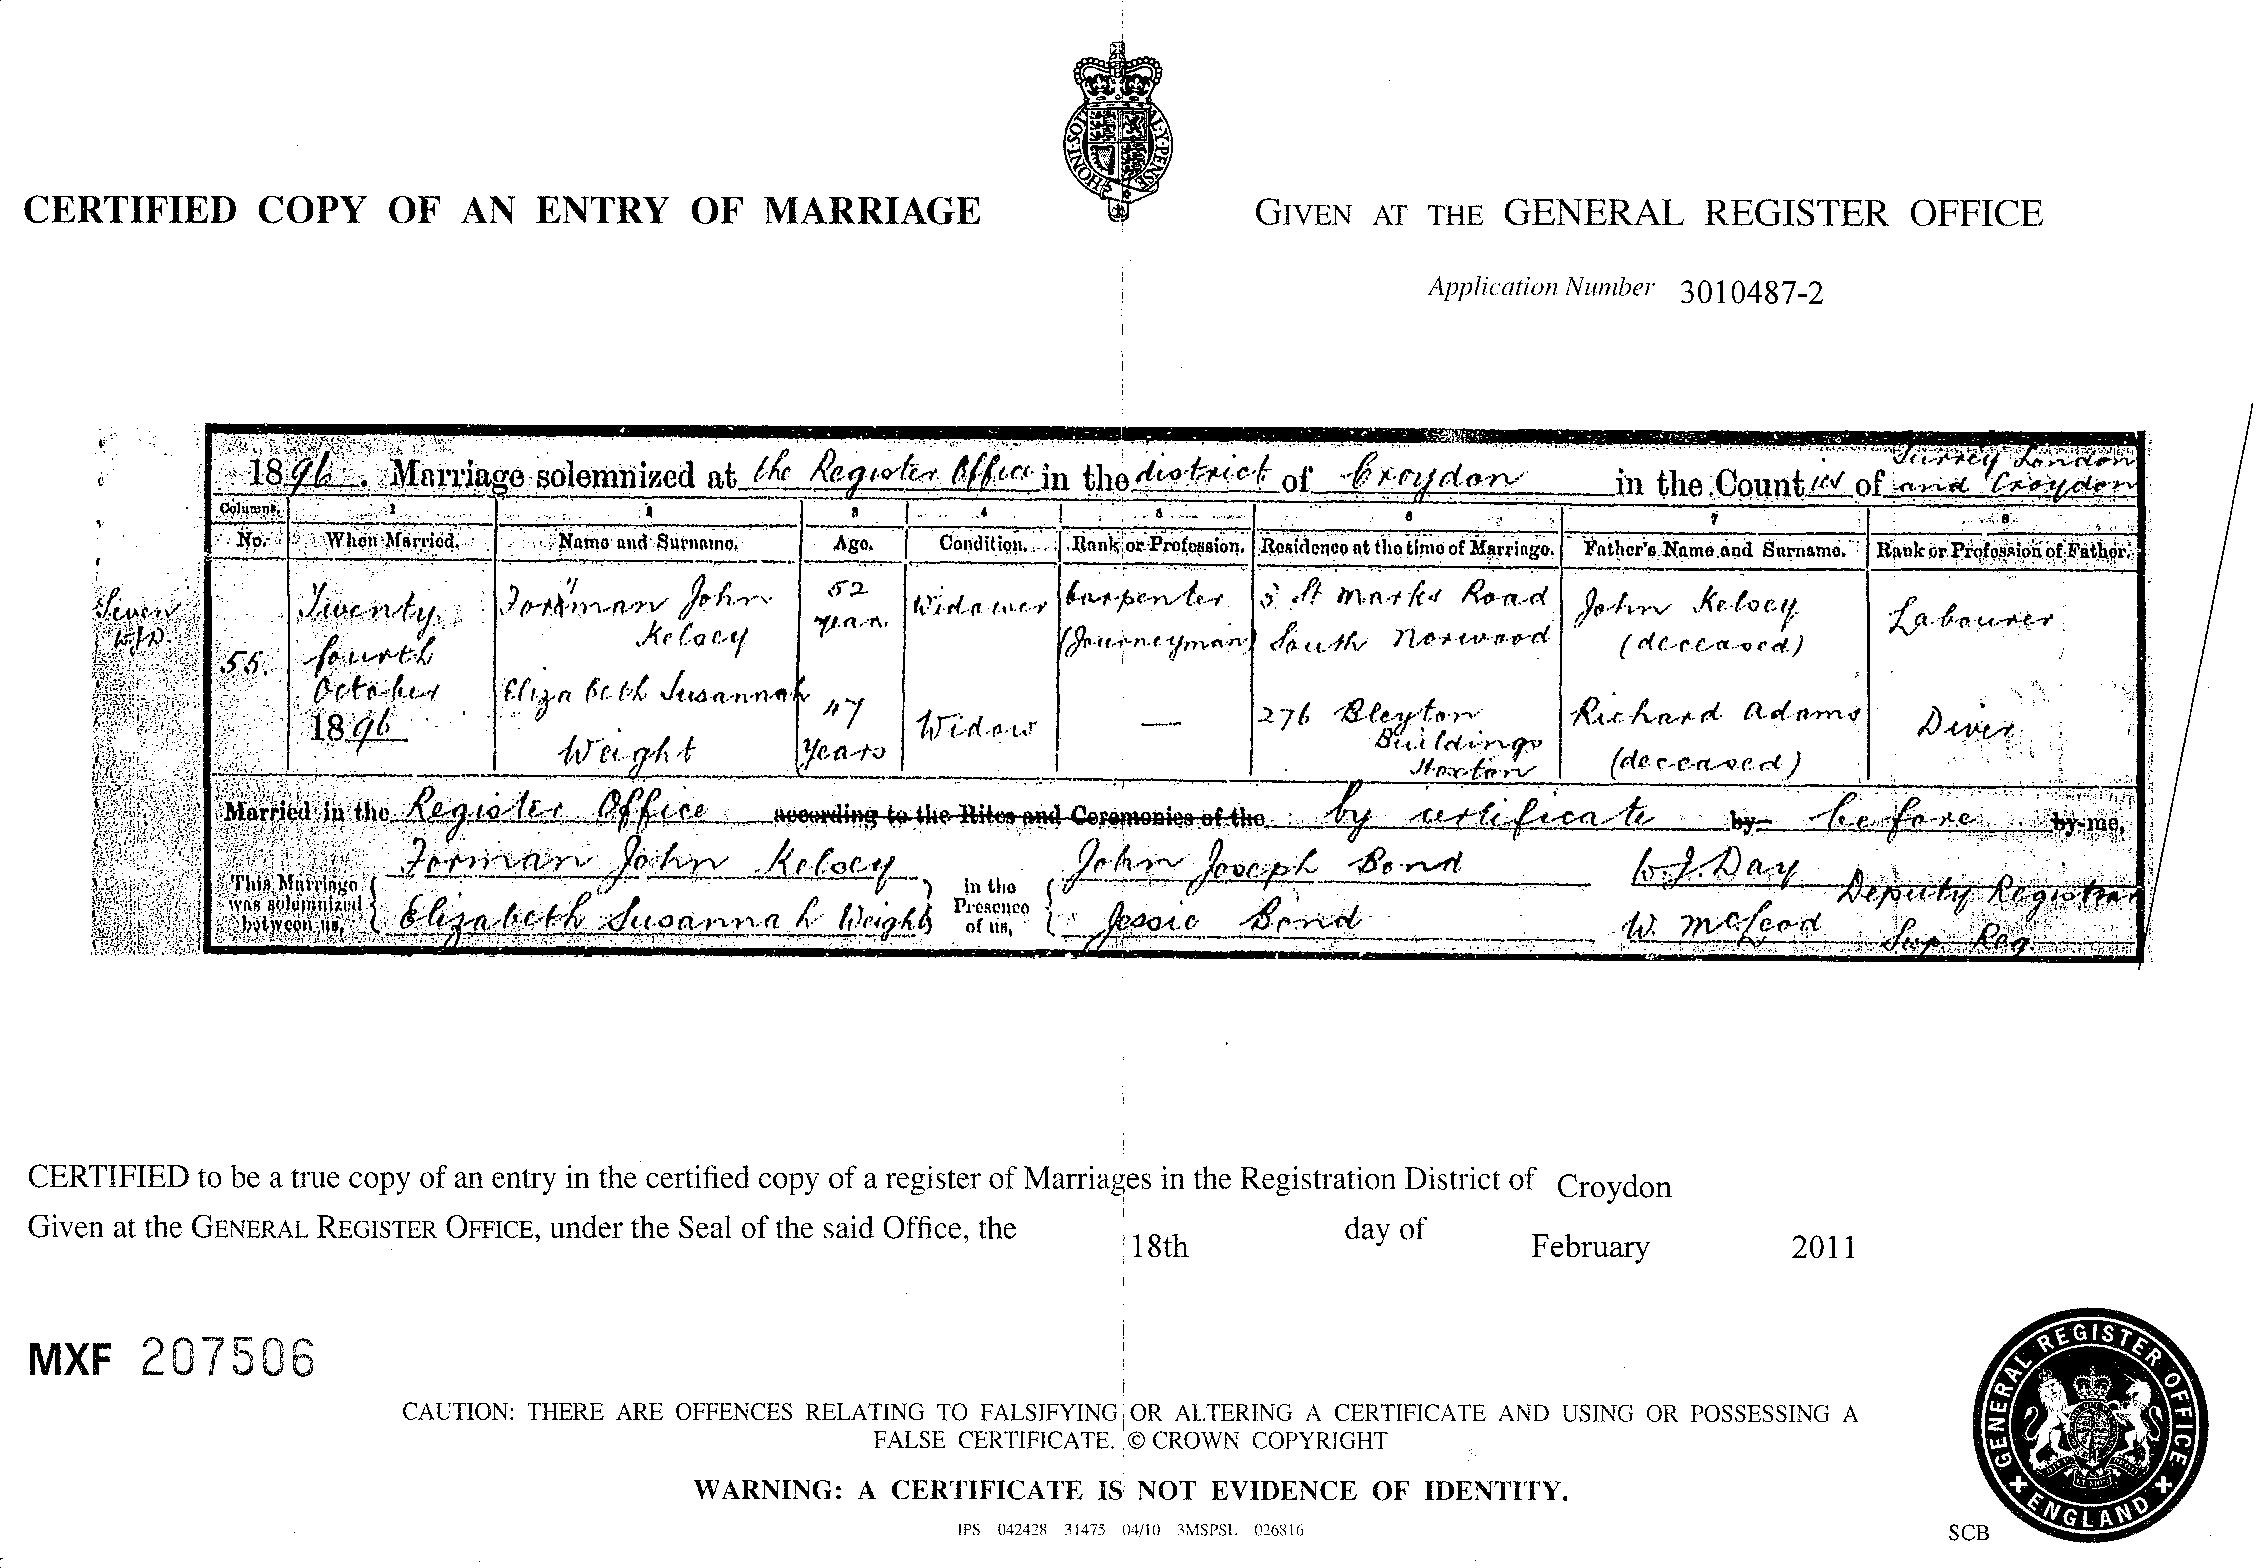 HONI·SOI AL·Y·PENSE
CERTIFIED COPY OF AN ENTRY OF MARRIAGE
GIVEN AT THE GENERAL REGISTER OFFICE
Application Number 3010487-2
1896. Marriage solemnized at the Register Office in the district of Croydon in the Counties of Surrey London and Croydon
Columns. 1 2 3 4 5 6 7 8
No. When Married. Name and Surname. Age. Condition. Rank or Profession. Residence at the time of Marriage. Father's Name and Surname. Rank or Profession of Father.
Seven
W.J.D.
55. Twenty fourth October 1896
Forman John Kelsey 52 years Widower Carpenter (Journeyman) 3 St Marks Road South Norwood John Kelsey (deceased) Labourer
Elizabeth Susannah Weight 47 Years Widow — 276 Bleyton Buildings Hoxton Richard Adams (deceased) Diver
Married in the Register Office according to the Rites and Ceremonies of the by certificate by before by me,
This Marriage was solemnized between us, Forman John Kelsey
Elizabeth Susannah Weight
In the Presence of us, John Joseph Bond
Jessie Bond
W.J. Day Deputy Registrar
W. McLeod Sup. Reg.
CERTIFIED to be a true copy of an entry in the certified copy of a register of Marriages in the Registration District of Croydon
Given at the GENERAL REGISTER OFFICE, under the Seal of the said Office, the 18th day of February 2011
MXF 207506
CAUTION: THERE ARE OFFENCES RELATING TO FALSIFYING OR ALTERING A CERTIFICATE AND USING OR POSSESSING A
FALSE CERTIFICATE. © CROWN COPYRIGHT
WARNING: A CERTIFICATE IS NOT EVIDENCE OF IDENTITY.
IPS 042428 31475 04/10 3MSPSL 026816
SCB
GENERAL REGISTER OFFICE
ENGLAND